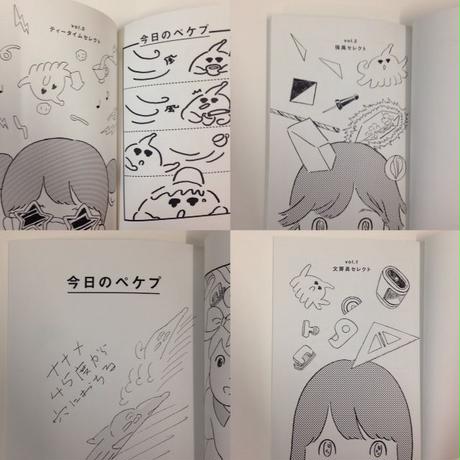 vol.3
ティータイムセレクト
今日のペケプ
vol.2
強風セレクト
今日のペケプ
ナナメ
45度から
穴におちる
vol.1
文房具セレクト